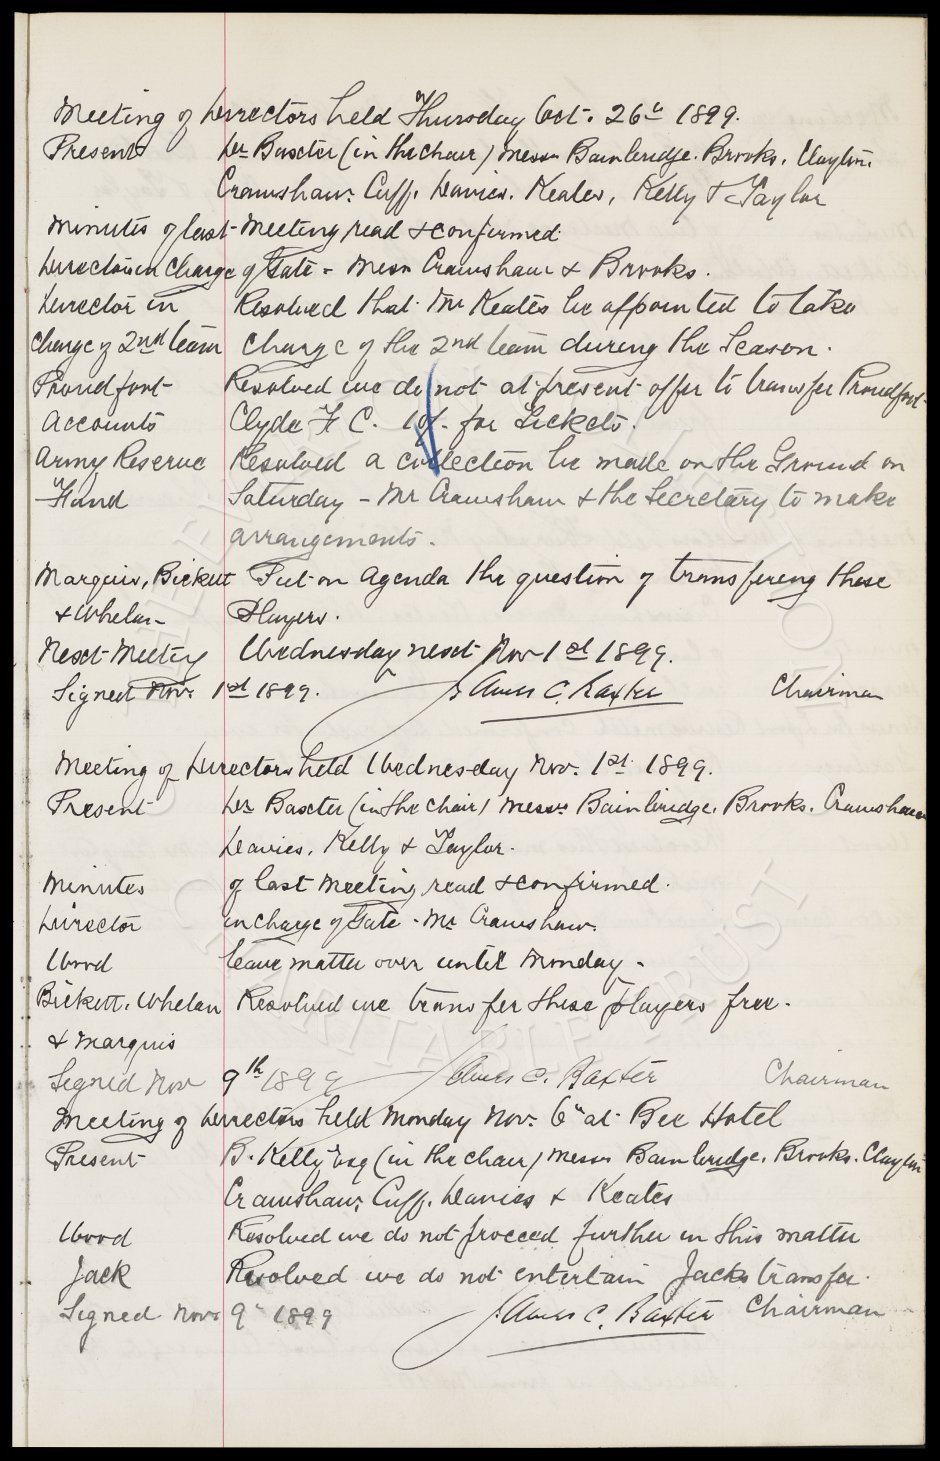 Meeting of Directors held Thursday Oct. 26th 1899.
Present Dr Baxter (in the chair) Messrs Bainbridge. Brooks. Clayton.
Crawshaw. Cuff. Davies. Keates, Kelly & Taylor
Minutes of last Meeting read & confirmed
Directors in charge of Gate - Messrs Crawshaw & Brooks.
Director in Resolved that Mr Keates be appointed to take
charge of 2nd team charge of the 2nd team during the Season.
Proudfoot Resolved we do not at present offer to transfer Proudfoot.
Accounts Clyde F C. 10/- for Tickets.
Army Reserve Resolved a collection be made on the Ground on
Fund Saturday - Mr Crawshaw & the Secretary to make
arrangements.
Marquis, Bickett Put on Agenda the question of transfering these
& Whelan Players.
Next Meeting Wednesday next Nov 1st 1899.
Signed Nov. 1st 1899. James C. Baxter Chairman
Meeting of Directors held Wednesday Nov. 1st 1899.
Present Dr Baxter (in the chair) Messrs Bainbridge. Brooks. Crawshaw
Davies. Kelly & Taylor.
Minutes of last Meeting read & confirmed.
Director in charge of Gate - Mr Crawshaw.
Wood leave matter over until Monday -
Bickett. Whelan Resolved we transfer these players free.
& Marquis
Signed Nov 9th 1899 James C. Baxter Chairman
Meeting of Directors held Monday Nov. 6th at Bee Hotel
Present B. Kelly Esq (in the chair) Messrs Bainbridge. Brooks. Clayton
Crawshaw, Cuff. Davies & Keates
Wood Resolved we do not proceed further in this matter
Jack Resolved we do not entertain Jacks transfer.
Signed Nov 9th 1899 James C. Baxter Chairman
EVERTON
CHARITABLE TRUST